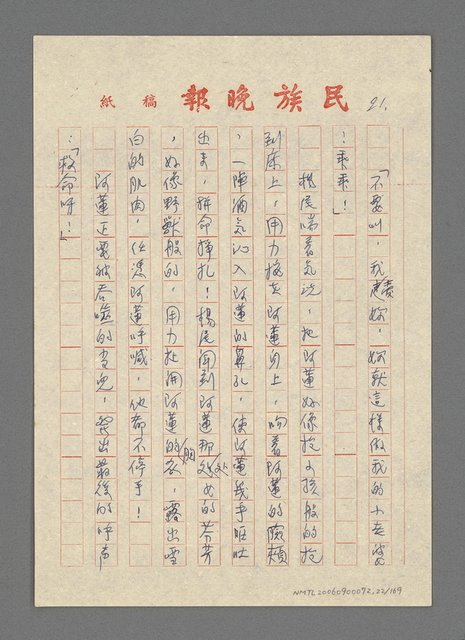 民族晚報 稿紙
21.
「不要叫，我 妳，妳就這樣做我的小老婆
！乖乖！」
楊尾喘著氣說，把阿蓮好像抱小孩般的抱
到床上，用力 在阿蓮身上，吻着阿蓮的臉頰
，一陣酒氣沁入阿蓮的鼻孔，使阿蓮幾乎嘔吐
出來，拼命掙扎！楊尾聞到阿蓮那处女的芬芳
，好像野獸般的，用力扯開阿蓮的胸衣，露出雪
白的肌肉，任憑阿蓮呼喊，他都不停手！
阿蓮正要被吞噬的當兒，發出最後的呼声
：「救命呀！」
NMTL20060900072,22/169